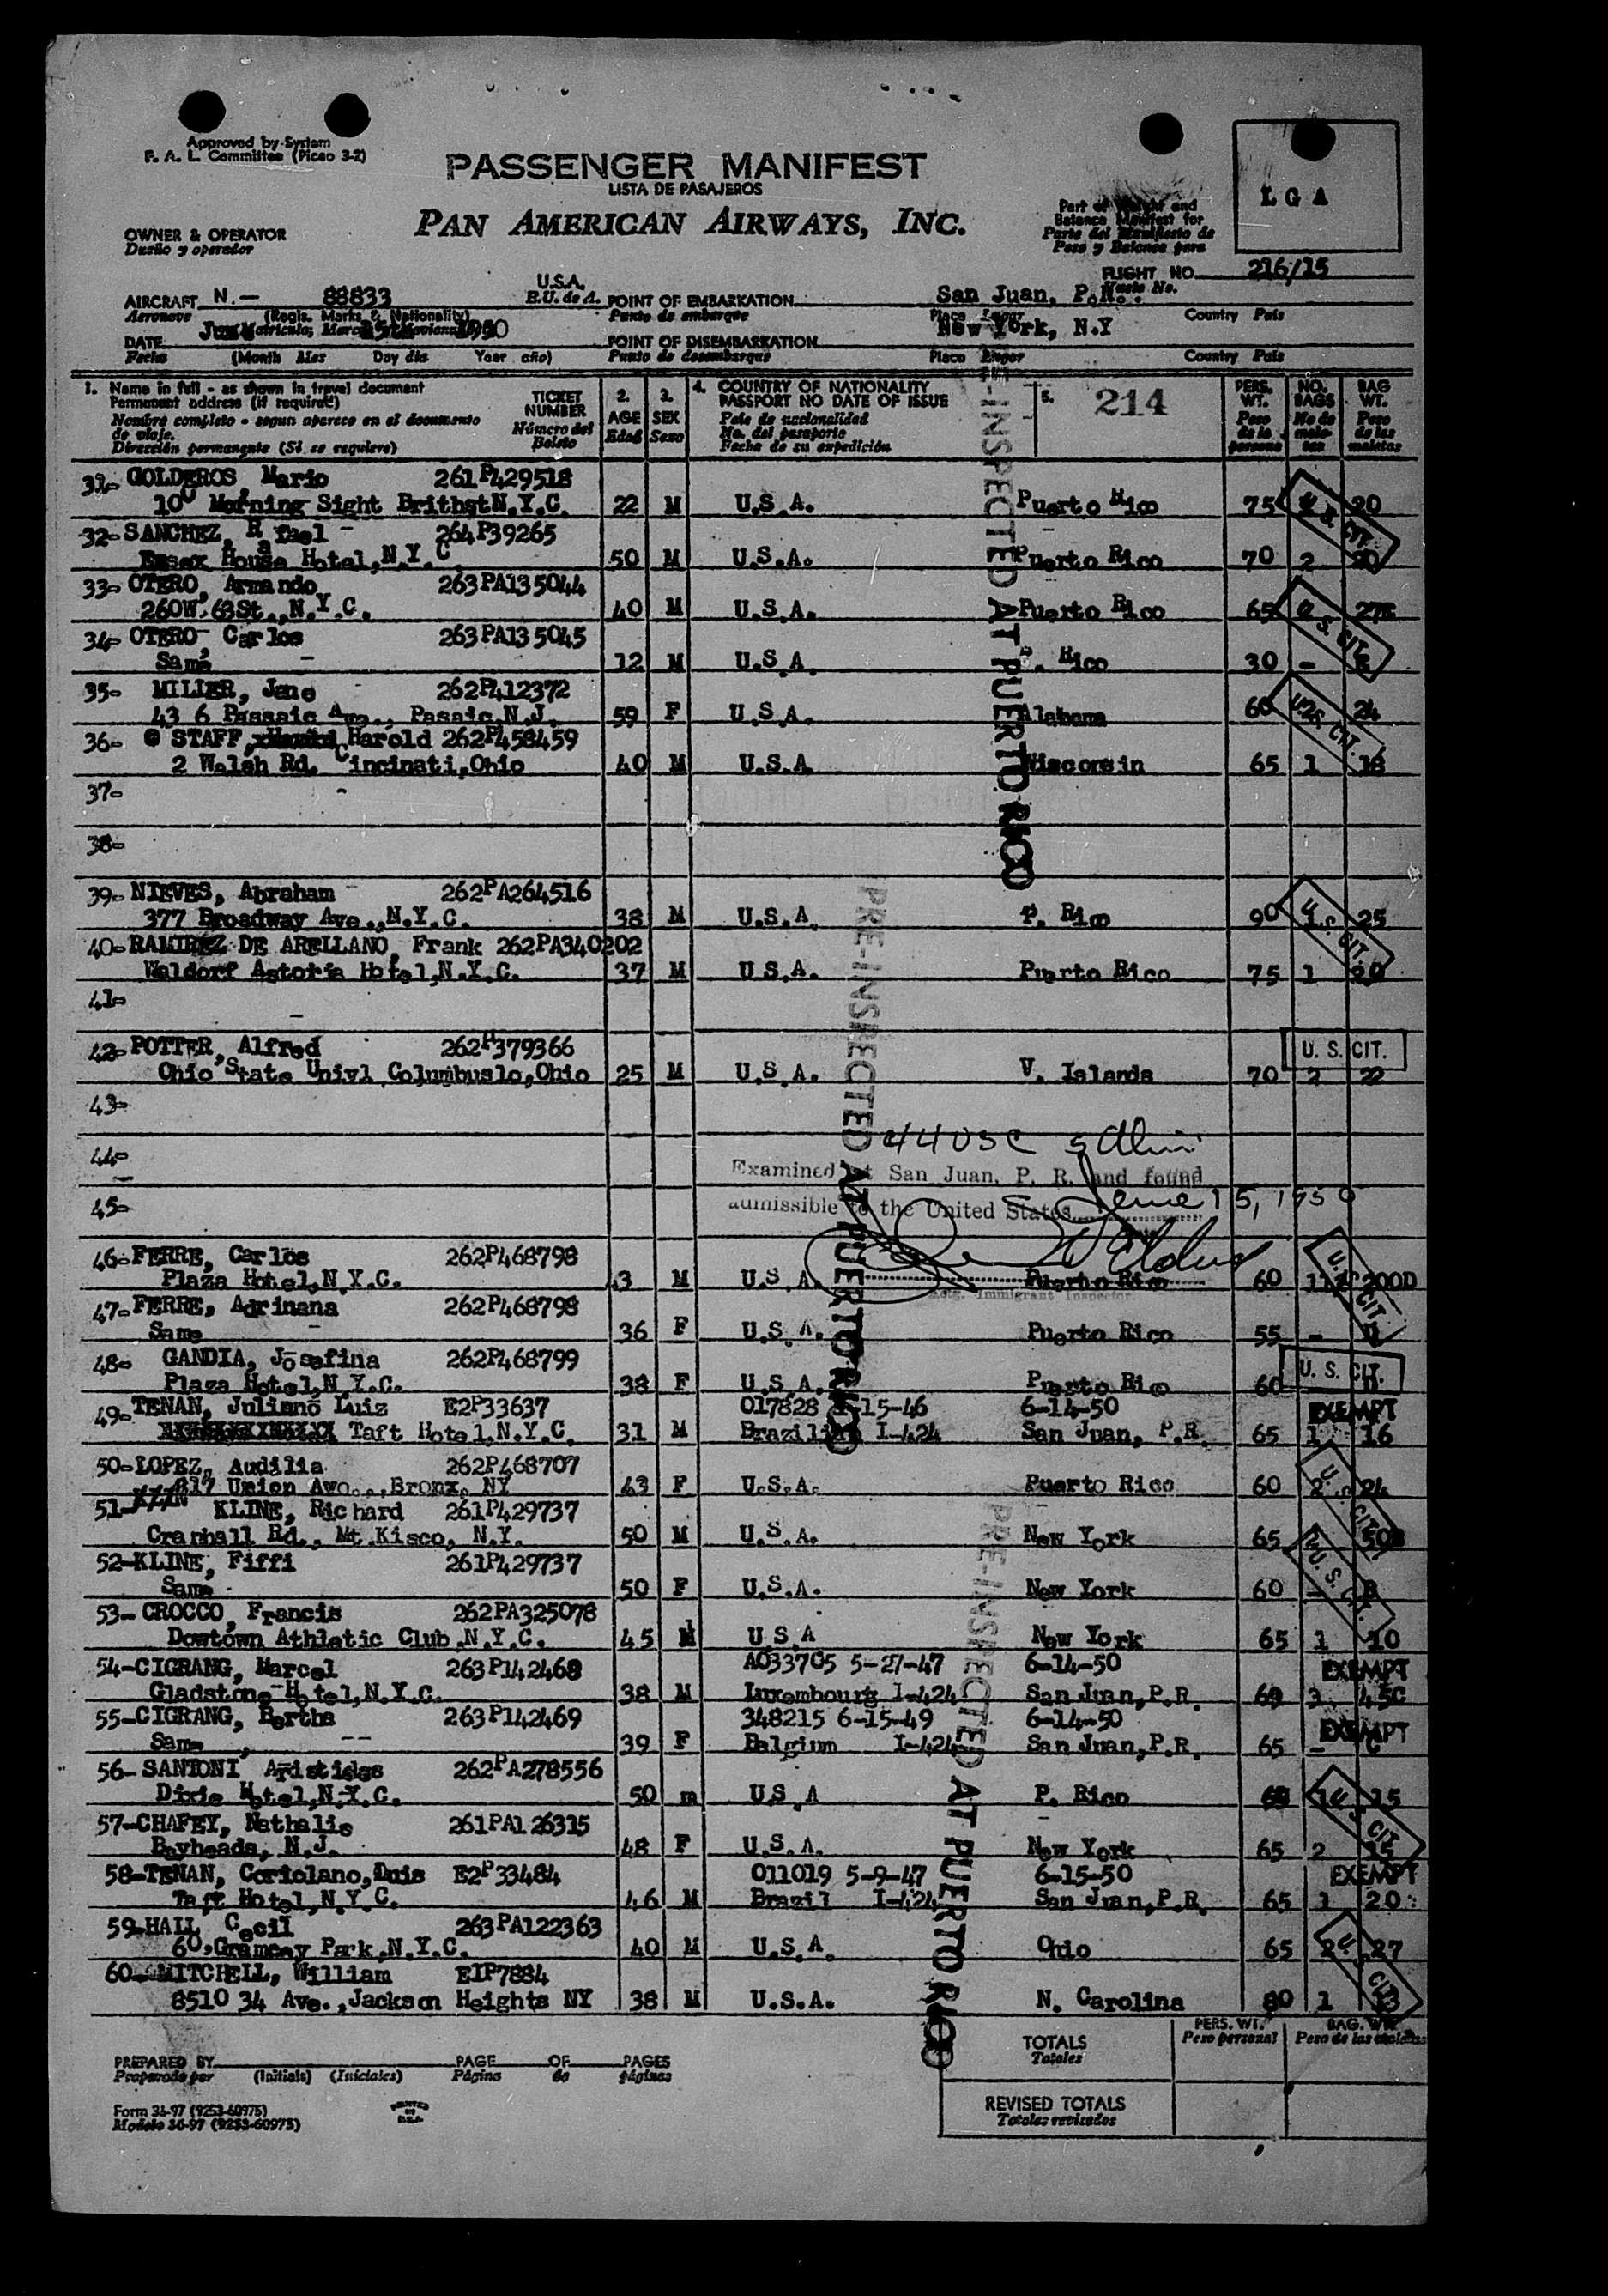 Approved by System
F. A. L. Committee (Picao 3-2)
PASSENGER MANIFEST
LISTA DE PASAJEROS
PAN AMERICAN AIRWAYS, INC.
OWNER & OPERATOR
Dueño y operador
Part of Weight and
Balance Manifest for
Parte del Manifiesto de
Peso y Balance para
L G A
FLIGHT NO. 216/15
Vuelo No.
AIRCRAFT N.- 88833 U.S.A.
Aeronave (Regis. Marks & Nationality) E.U. de A.
POINT OF EMBARKATION San Juan, P.R.
Punto de embarque Place Lugar Country País
DATE June 15th 1950
Fecha (Month Mes Day día Year año)
POINT OF DISEMBARKATION New York, N.Y
Punto de desembarque Place Lugar Country País
1. Name in full - as shown in travel document
Permanent address (if required)
Nombre completo - segun aparece en el documento
de viaje.
Dirección permanente (Si se requiere)
TICKET
NUMBER
Número del
Boleto
2.
AGE
Edad
3.
SEX
Sexo
4. COUNTRY OF NATIONALITY
PASSPORT NO DATE OF ISSUE
País de nacionalidad
No. del pasaporte
Fecha de su expedición
5. 214
PERS.
WT.
Peso
de la
persona
NO.
BAGS
No de
male-
tas
BAG
WT.
Peso
de las
maletas
31- GOLDEROS, Mario 261P429518
10 Morning Sight Brithst N.Y.C. 22 M U.S.A. Puerto Rico 75 20
32- SANCHEZ, Rafael 264P39265
Essex House Hotel, N.Y.C 50 M U.S.A. Puerto Rico 70 2 20
33- OTERO, Armando 263PA135044
260W. 63St., N.Y.C. 40 M U.S.A. Puerto Rico 65
34- OTERO, Carlos 263PA135045
Same 12 M U.S.A. P. Rico 30 -
35- MILLER, Jane 262P412372
43 6 Passaic Ave., Pasaic, N.J. 59 F U.S.A. Alabama 60 24
36- STAFF, Harold 262P458459
2 Walsh Rd. Cincinati, Ohio 40 M U.S.A. Wisconsin 65 1 18
37-
38-
39- NIEVES, Abraham 262PA264516
377 Broadway Ave., N.Y.C. 38 M U.S.A. P. Rico 90 1 25
40- RAMIREZ DE ARELLANO, Frank 262PA340202
Waldorf Astoria Hotel, N.Y.C. 37 M U.S.A. Puerto Rico 75 1 20
41-
42- POTTER, Alfred 262P379366 U. S. CIT.
Ohio State Univl Columbuslo, Ohio 25 M U.S.A. V. Islands 70 2 22
43-
44 USC
44-
Examined at San Juan, P. R. and found
admissible to the United States June 15, 1950
45-
46- FERRE, Carlos 262P468798
Plaza Hotel, N.Y.C. 43 M U.S.A. Puerto Rico 60
Immigrant Inspector.
47- FERRE, Adrinana 262P468798
Same 36 F U.S.A. Puerto Rico 55 -
48- GANDIA, Josefina 262P468799 U. S. CIT.
Plaza Hotel, N.Y.C. 38 F U.S.A. Puerto Rico 60
49- TENAN, Juliano Luiz E2P33637 017828 1-15-46 6-14-50 EXEMPT
Taft Hotel, N.Y.C. 31 M Brazilian I-424 San Juan, P.R. 65 1 16
50- LOPEZ, Audilia 262P468707
817 Union Ave., Bronx, NY 43 F U.S.A. Puerto Rico 60 2 24
51- KLINE, Richard 261P429737
Cranhall Rd., Mt. Kisco, N.Y. 50 M U.S.A. New York 65 2
52- KLINE, Fiffi 261P429737
Same 50 F U.S.A. New York 60 -
53- CROCCO, Francis 262PA325078
Dowtown Athletic Club, N.Y.C. 45 M U.S.A New York 65 1 10
54- CIGRANG, Marcel 263P142468 A033705 5-27-47 6-14-50 EXEMPT
Gladstone Hotel, N.Y.C. 38 M Luxembourg I-424 San Juan, P.R. 3 45C
55- CIGRANG, Bertha 263P142469 348215 6-15-49 6-14-50 EXEMPT
Same 39 F Belgium I-424 San Juan, P.R. 65 - C
56- SANTONI Aristides 262PA278556
Dixie Hotel, N.Y.C. 50 m U.S.A P. Rico 15
57- CHAFEY, Nathalie 261PA126315
Bayheads, N.J. 48 F U.S.A. New York 65 2 15
58- TENAN, Coriolano, Duis E2P33484 011019 5-9-47 6-15-50 EXEMPT
Taft Hotel, N.Y.C. 46 M Brazil I-424 San Juan, P.R. 65 1 20
59- HALL Cecil 263PA122363
60, Gramecy Park, N.Y.C. 40 M U.S.A. Ohio 65 2 27
60- MITCHELL, William E1P7884
8510 34 Ave., Jackson Heights NY 38 M U.S.A. N. Carolina 80 1 13
PRE-INSPECTED AT PUERTO RICO
PRE-INSPECTED AT PUERTO RICO
PRE-INSPECTED AT PUERTO RICO
PREPARED BY
Preparado por (Initials) (Iniciales)
PAGE OF PAGES
Página de páginas
TOTALS
Totales
PERS. WT.
Peso personal
BAG. WT.
Peso de las maletas
REVISED TOTALS
Totales revisados
Form 36-97 (9253-60975)
Modelo 36-97 (9253-60975)
PRINTED
IN
U.S.A.